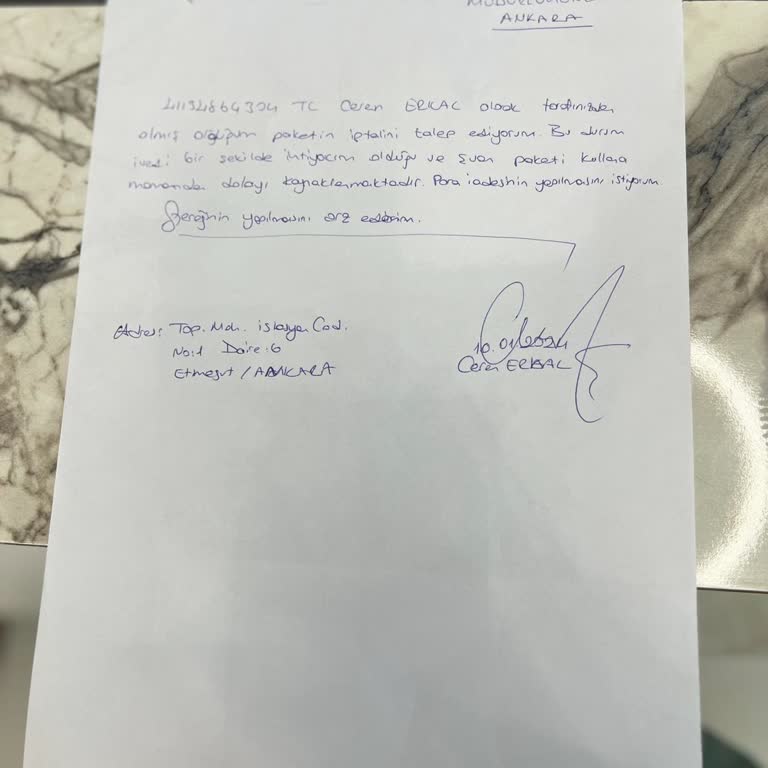 ANKARA
TC Ceren ERKAL olarak tarafınızdan
almış olduğum paketin iptalini talep ediyorum. Bu durum
ivedi bir şekilde ihtiyacım olduğu ve şuan paketi kullana
mamamdan dolayı kaynaklanmaktadır. Para iadesinin yapılmasını istiyorum.
Gereğinin yapılmasını arz ederim.
Adres: Top. Mah. istasyon Cad.
No:1 Daire:6
Etimesgut / ANKARA
Ceren ERKAL